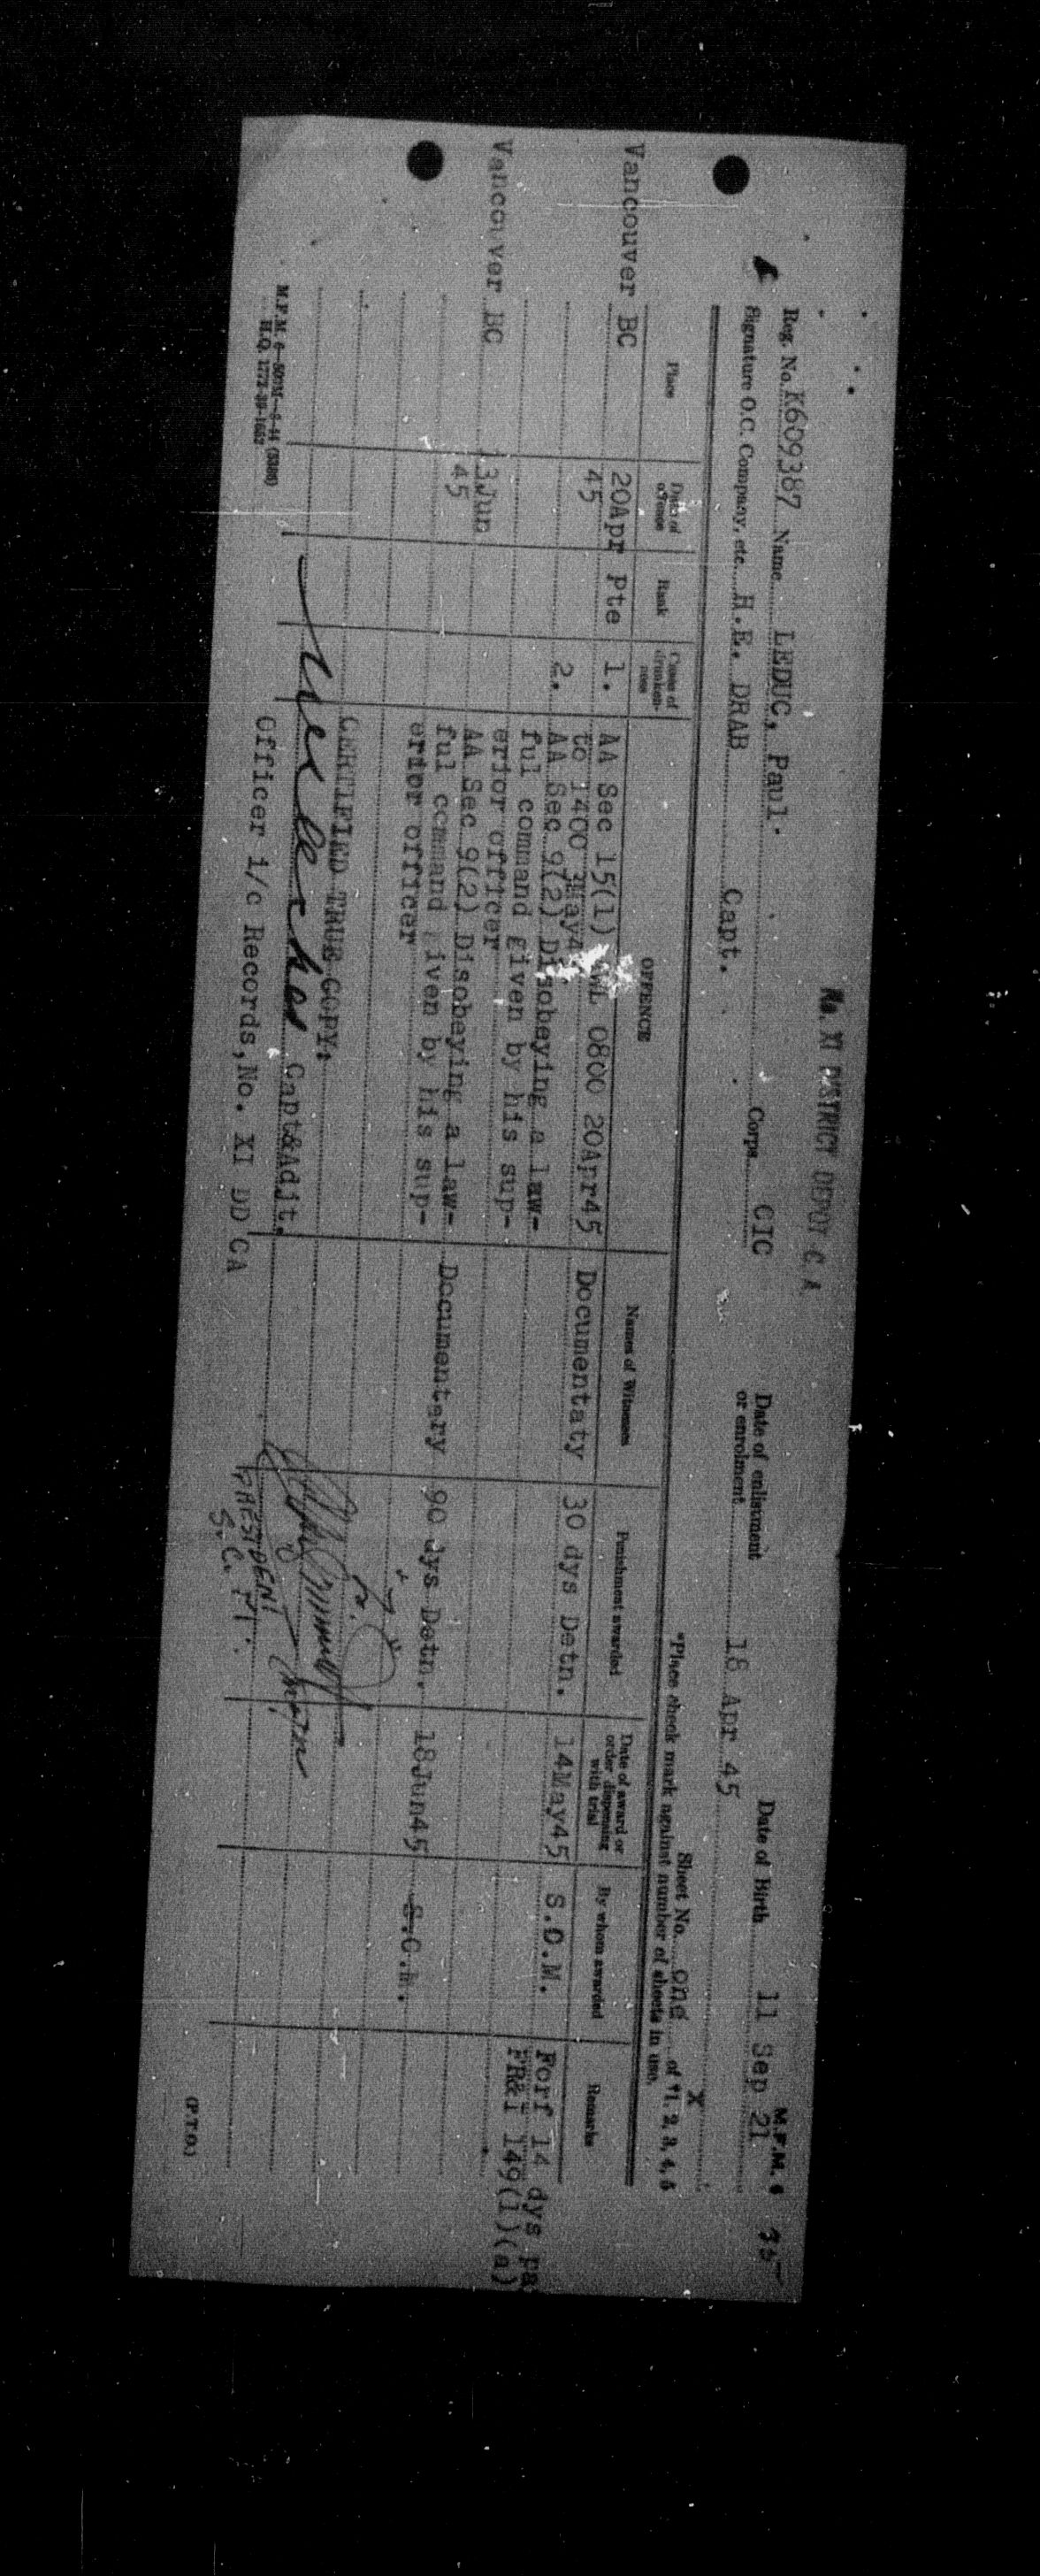 No. XI DISTRICT DEPOT C. A
M.F.M. 6
Reg. No. K609387 Name LEDUC, Paul. Corps CIC Date of enlistment or enrolment 18 Apr 45 Date of Birth 11 Sep 21
Signature O.C. Company, etc. H.E. DRAB Capt.
Sheet No. one of *1, 2, 3, 4, 5
X
*Place check mark against number of sheets in use.
Place Date of offence Rank Cases of drunkenness OFFENCE Names of Witnesses Punishment awarded Date of award or order dispensing with trial By whom awarded Remarks
Vancouver BC 20Apr Pte 1. AA Sec 15(1) AWL 0800 20Apr45 Documentaty 30 dys Detn. 14May45 S.O.M. Forf 14 dys pa
45 to 1400 3May4 FR&I 149(1)(a)
2. AA Sec 9(2) Disobeying a law-
ful command given by his sup-
erior officer
Vancouver BC 13Jun AA Sec 9(2) Disobeying a law- Documentary 90 dys Detn. 18Jun45 S.C.M.
45 ful command given by his sup-
erior officer
CERTIFIED TRUE COPY:
Capt&Adjt.
Officer i/c Records, No. XI DD CA
PRESIDENT
S. C. M.
M.F.M. 6—500M—8-44 (5186)
H.Q. 1772-39-1652
(P.T.O.)